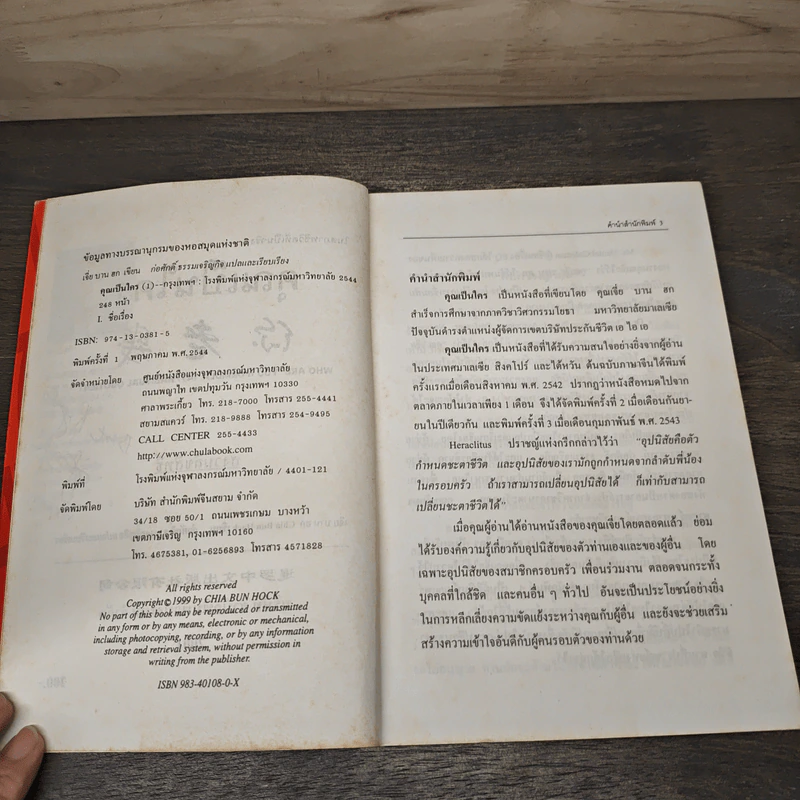 ข้อมูลทางบรรณานุกรมของหอสมุดแห่งชาติ
เจี่ย บาน ฮก เขียน ก่อศักดิ์ ธรรมเจริญกิจ แปลและเรียบเรียง
คุณเป็นใคร (1)--กรุงเทพฯ : โรงพิมพ์แห่งจุฬาลงกรณ์มหาวิทยาลัย 2544
248 หน้า
I. ชื่อเรื่อง
ISBN: 974-13-0381-5
พิมพ์ครั้งที่ 1 พฤษภาคม พ.ศ.2544
จัดจำหน่ายโดย ศูนย์หนังสือแห่งจุฬาลงกรณ์มหาวิทยาลัย
ถนนพญาไท เขตปทุมวัน กรุงเทพฯ 10330
ศาลาพระเกี้ยว โทร. 218-7000 โทรสาร 255-4441
สยามสแควร์ โทร. 218-9888 โทรสาร 254-9495
CALL CENTER 255-4433
http://www.chulabook.com
พิมพ์ที่ โรงพิมพ์แห่งจุฬาลงกรณ์มหาวิทยาลัย / 4401-121
จัดพิมพ์โดย บริษัท สำนักพิมพ์จีนสยาม จำกัด
34/18 ซอย 50/1 ถนนเพชรเกษม บางหว้า
เขตภาษีเจริญ กรุงเทพฯ 10160
โทร. 4675381, 01-6256893 โทรสาร 4571828
All rights reserved
Copyright © 1999 by CHIA BUN HOCK
No part of this book may be reproduced or transmitted
in any form or by any means, electronic or mechanical,
including photocopying, recording, or by any information
storage and retrieval system, without permission in
writing from the publisher.
ISBN 983-40108-0-X
คำนำสำนักพิมพ์ 3
คำนำสำนักพิมพ์
คุณเป็นใคร เป็นหนังสือที่เขียนโดย คุณเจี่ย บาน ฮก
สำเร็จการศึกษาจากภาควิชาวิศวกรรมโยธา มหาวิทยาลัยมาเลเซีย
ปัจจุบันดำรงตำแหน่งผู้จัดการเขตบริษัทประกันชีวิต เอ ไอ เอ
คุณเป็นใคร เป็นหนังสือที่ได้รับความสนใจอย่างยิ่งจากผู้อ่าน
ในประเทศมาเลเซีย สิงคโปร์ และไต้หวัน ต้นฉบับภาษาจีนได้พิมพ์
ครั้งแรกเมื่อเดือนสิงหาคม พ.ศ. 2542 ปรากฏว่าหนังสือหมดไปจาก
ตลาดภายในเวลาเพียง 1 เดือน จึงได้จัดพิมพ์ครั้งที่ 2 เมื่อเดือนกันยา-
ยนในปีเดียวกัน และพิมพ์ครั้งที่ 3 เมื่อเดือนกุมภาพันธ์ พ.ศ. 2543
Heraclitus ปราชญ์แห่งกรีกกล่าวไว้ว่า "อุปนิสัยคือตัว
กำหนดชะตาชีวิต และอุปนิสัยของเรามักถูกกำหนดจากลำดับพี่น้อง
ในครอบครัว ถ้าเราสามารถเปลี่ยนอุปนิสัยได้ ก็เท่ากับสามารถ
เปลี่ยนชะตาชีวิตได้"
เมื่อคุณผู้อ่านได้อ่านหนังสือของคุณเจี่ยโดยตลอดแล้ว ย่อม
ได้รับองค์ความรู้เกี่ยวกับอุปนิสัยของตัวท่านเองและของผู้อื่น โดย
เฉพาะอุปนิสัยของสมาชิกครอบครัว เพื่อนร่วมงาน ตลอดจนกระทั่ง
บุคคลที่ใกล้ชิด และคนอื่น ๆ ทั่วไป อันจะเป็นประโยชน์อย่างยิ่ง
ในการหลีกเลี่ยงความขัดแย้งระหว่างคุณกับผู้อื่น และยังจะช่วยเสริม
สร้างความเข้าใจอันดีกับผู้คนรอบตัวของท่านด้วย